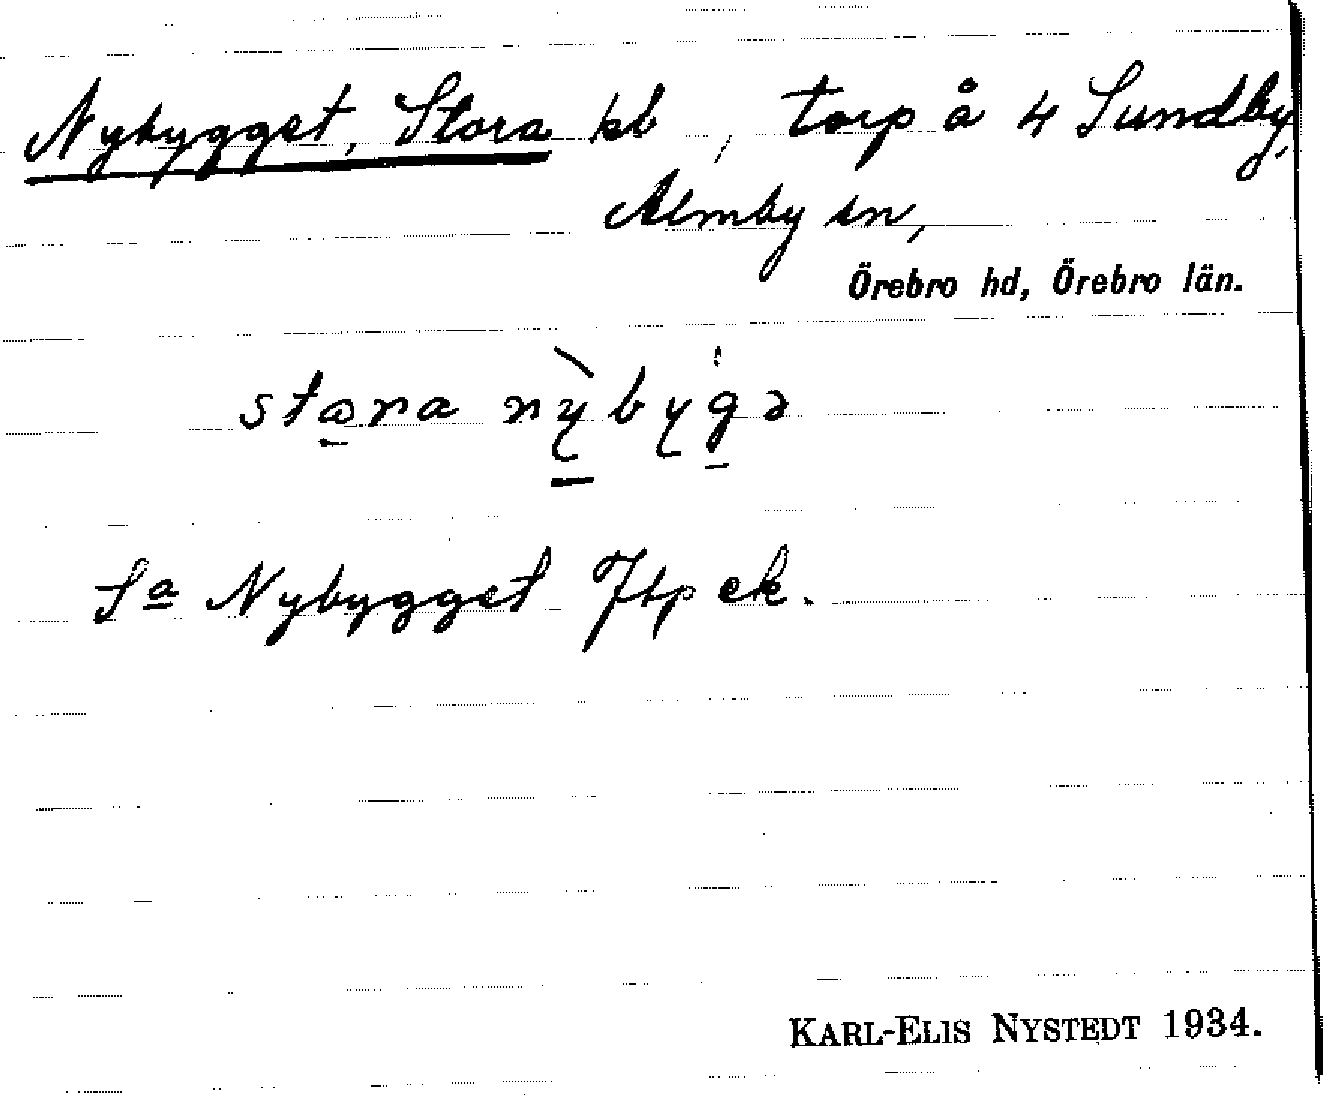 Nybygget, Stora kb, torp å 4 Sundby,
Almby sn,
Örebro hd, Örebro län.
stɷra nỳbýgə
Sa Nybygget Jtp ek.
KARL-ELIS NYSTEDT 1934.